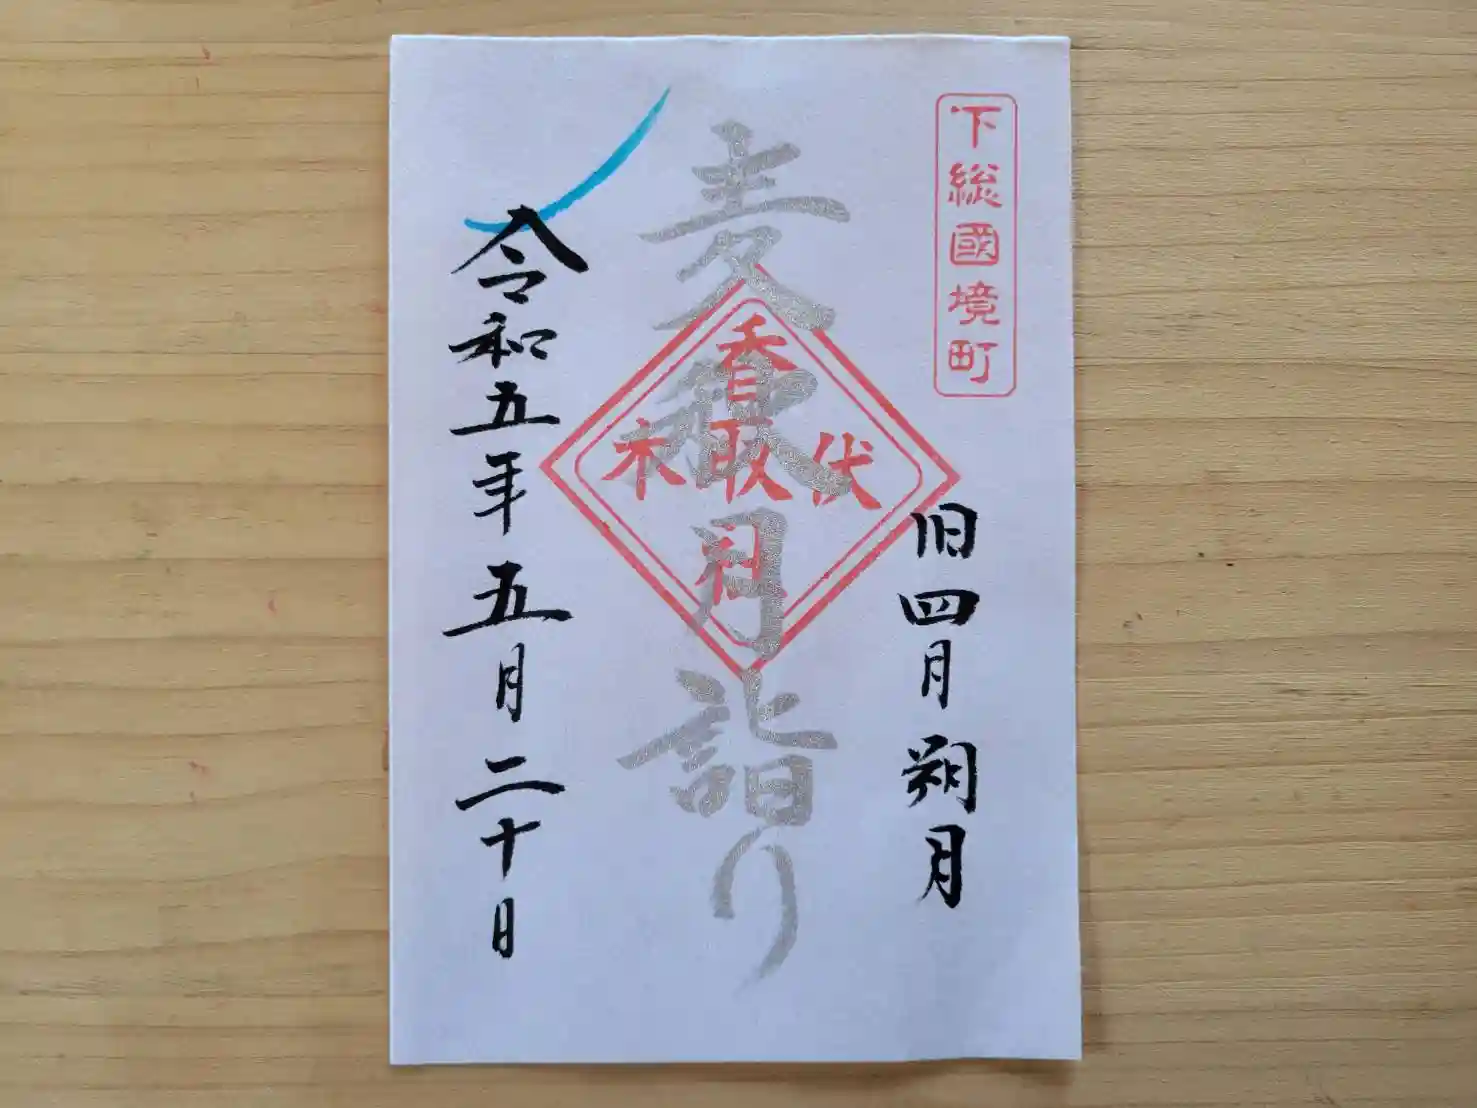 下総國境町
旧四月朔月
麦秋月詣り
伏木
香取
令和五年五月二十日